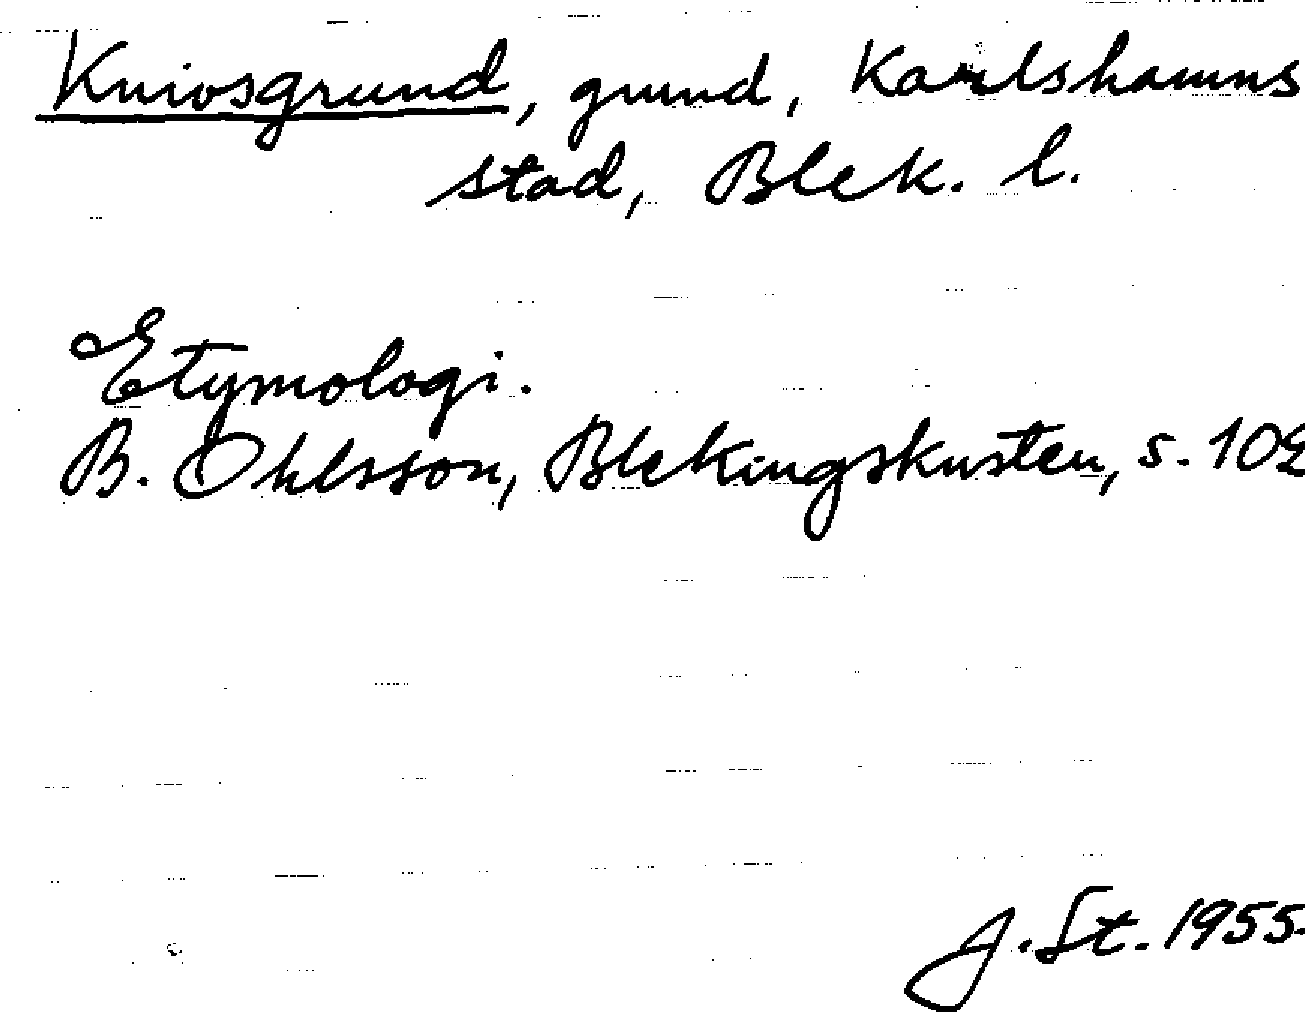 Kniosgrund, grund, Karlshamns
stad, Blek. l.
Etymologi.
B. Ohlsson, Blekingskusten, s. 102
J. St. 1955.